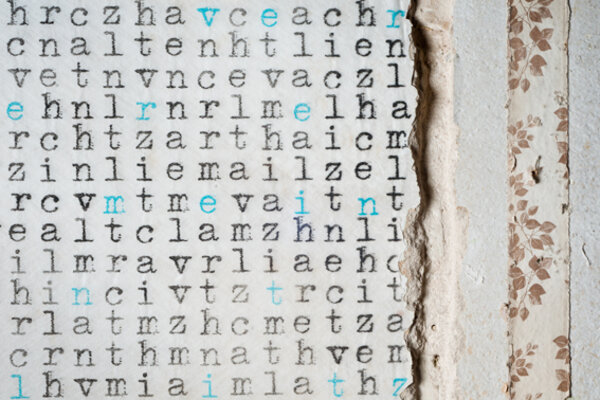 hrczhavceachr
cnaltenhtlien
vetnvncevaczl
ehnlrnrlmelha
rchtzarthaicm
zinliemailzel
rcvmtmevaitnt
ealtclamzhnli
ilmravrliaehc
hincivtztrcit
rlatmzhcmetza
crnthmnathvem
lhvmiaimlathz